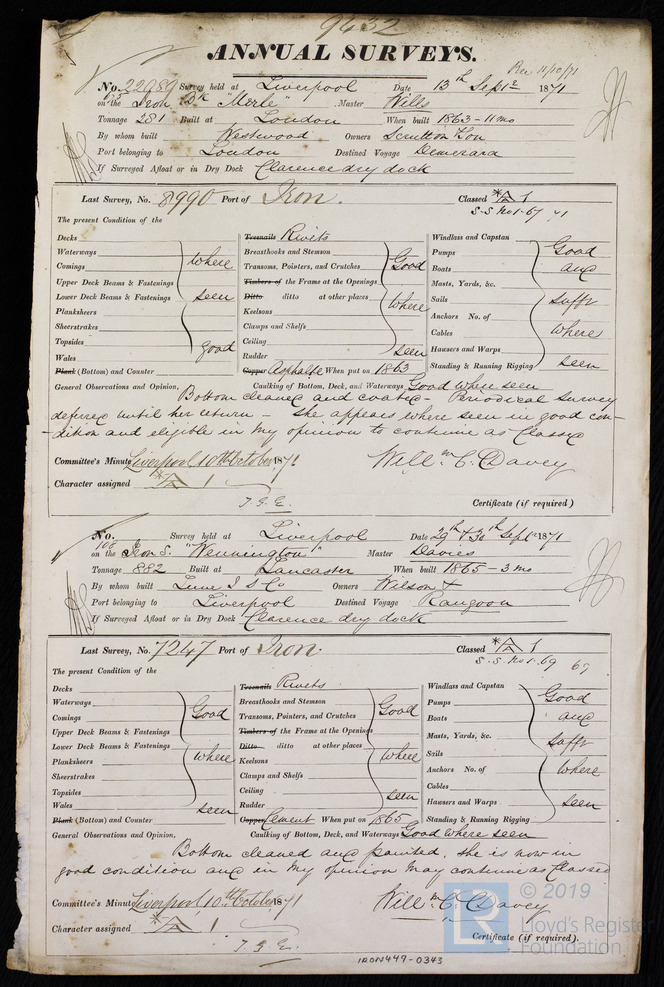 9432
ANNUAL SURVEYS.
Rec 11/10/71
No. 22989 Survey held at Liverpool Date 13th Septr 1871
on the Iron Bk "Merle" Master Wills
Tonnage 281 Built at London When built 1863-11mo
By whom built Westwood Owners Scrutton &on
Port belonging to London Destined Voyage Demerara
If Surveyed Afloat or in Dry Dock Clarence dry dock
Last Survey, No. 8990 Port of Iron. Classed *A 1
S.S. No 1-67
The present Condition of the
Decks
Waterways
Comings
Upper Deck Beams & Fastenings
Lower Deck Beams & Fastenings
Planksheers
Sheerstrakes
Topsides
Wales
Plank (Bottom) and Counter
where
seen
good
Treenails Rivets
Breasthooks and Stemson
Transoms, Pointers, and Crutches
Timbers of the Frame at the Openings
Ditto ditto at other places
Keelsons
Clamps and Shelfs
Ceiling
Rudder
Copper Asphalte When put on 1863
Good
where
seen
Windlass and Capstan
Pumps
Boats
Masts, Yards, &c.
Sails
Anchors No. of
Cables
Hausers and Warps
Standing & Running Rigging
Good
and
suffr
where
seen
General Observations and Opinion, Caulking of Bottom, Deck, and Waterways Good where seen
Bottom cleaned and coated - Periodical Survey
defered until her return - She appears where seen in good con-
-dition and eligible in my opinion to continue as Classed
Committee's Minute Liverpool, 10th October 1871 Willm C. Davey
Character assigned *A 1
Certificate (if required)
No. Survey held at Liverpool Date 29th & 30th Septr 1871
on the Iron S. "Wennington" Master Davies
Tonnage 882 Built at Lancaster When built 1865-3mo
By whom built Lune S S Co Owners Wilson &
Port belonging to Liverpool Destined Voyage Rangoon
If Surveyed Afloat or in Dry Dock Clarence dry dock
Last Survey, No. 7247 Port of Iron. Classed *A 1
S.S. No 1-69
The present Condition of the
Decks
Waterways
Comings
Upper Deck Beams & Fastenings
Lower Deck Beams & Fastenings
Planksheers
Sheerstrakes
Topsides
Wales
Plank (Bottom) and Counter
Good
where
seen
Treenails Rivets
Breasthooks and Stemson
Transoms, Pointers, and Crutches
Timbers of the Frame at the Openings
Ditto ditto at other places
Keelsons
Clamps and Shelfs
Ceiling
Rudder
Copper Cement When put on 1865
Good
where
seen
Windlass and Capstan
Pumps
Boats
Masts, Yards, &c.
Sails
Anchors No. of
Cables
Hausers and Warps
Standing & Running Rigging
Good
and
suffr
where
seen
General Observations and Opinion, Caulking of Bottom, Deck, and Waterways Good where seen
Bottom cleaned and painted. She is now in
good condition and in my opinion may continue as Classed
Committee's Minute Liverpool, 10th October 1871 Willm C. Davey
Character assigned *A 1
Certificate (if required).
IRON449-0343
LR
© 2019
Lloyd's Register
Foundation